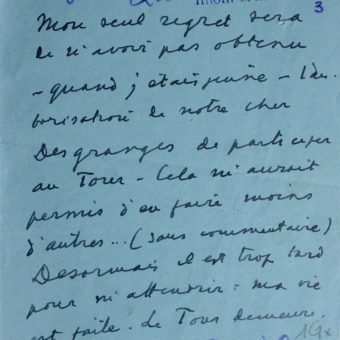 3
Mon seul regret sera
de n'avoir pas obtenu
- quand j'étais jeune - l'au-
torisation de notre cher
Desgranges de participer
au Tour - Cela m'aurait
permis d'en faire moins
d'autres... (sans commentaire)
Desormais il est trop tard
pour m'attendrir : ma vie
est faite. Le Tour demeure.